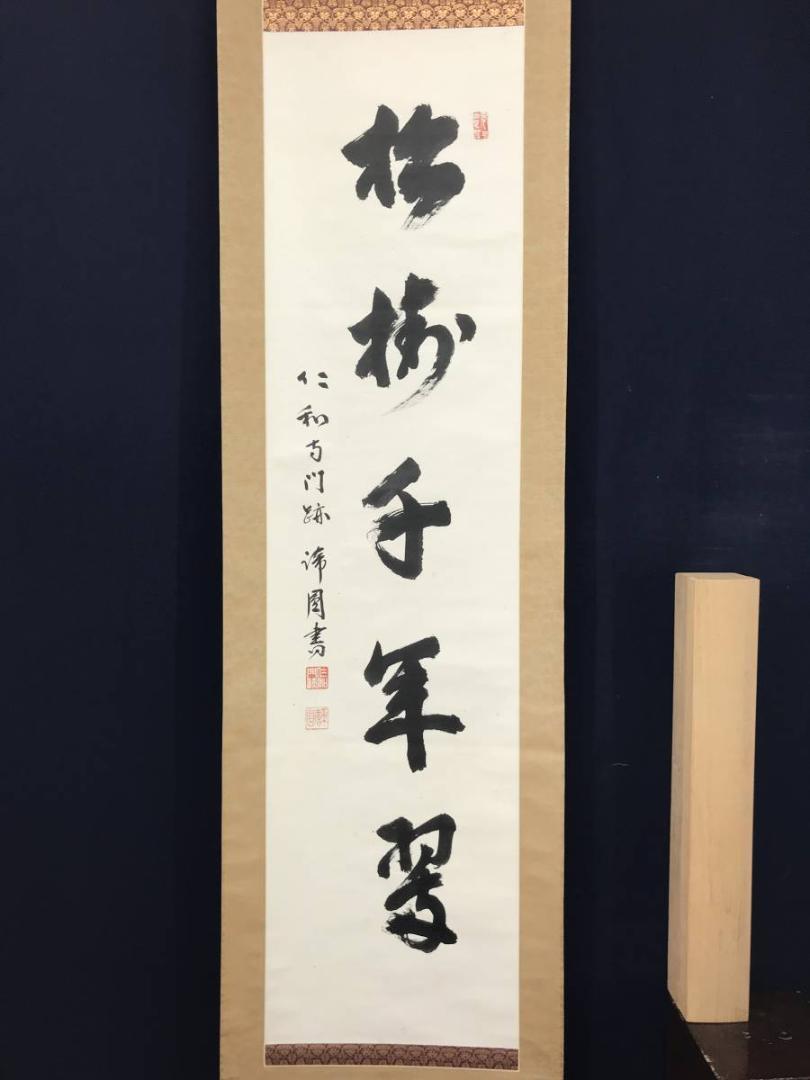 松樹千年翠
仁和寺門跡 諦圓書